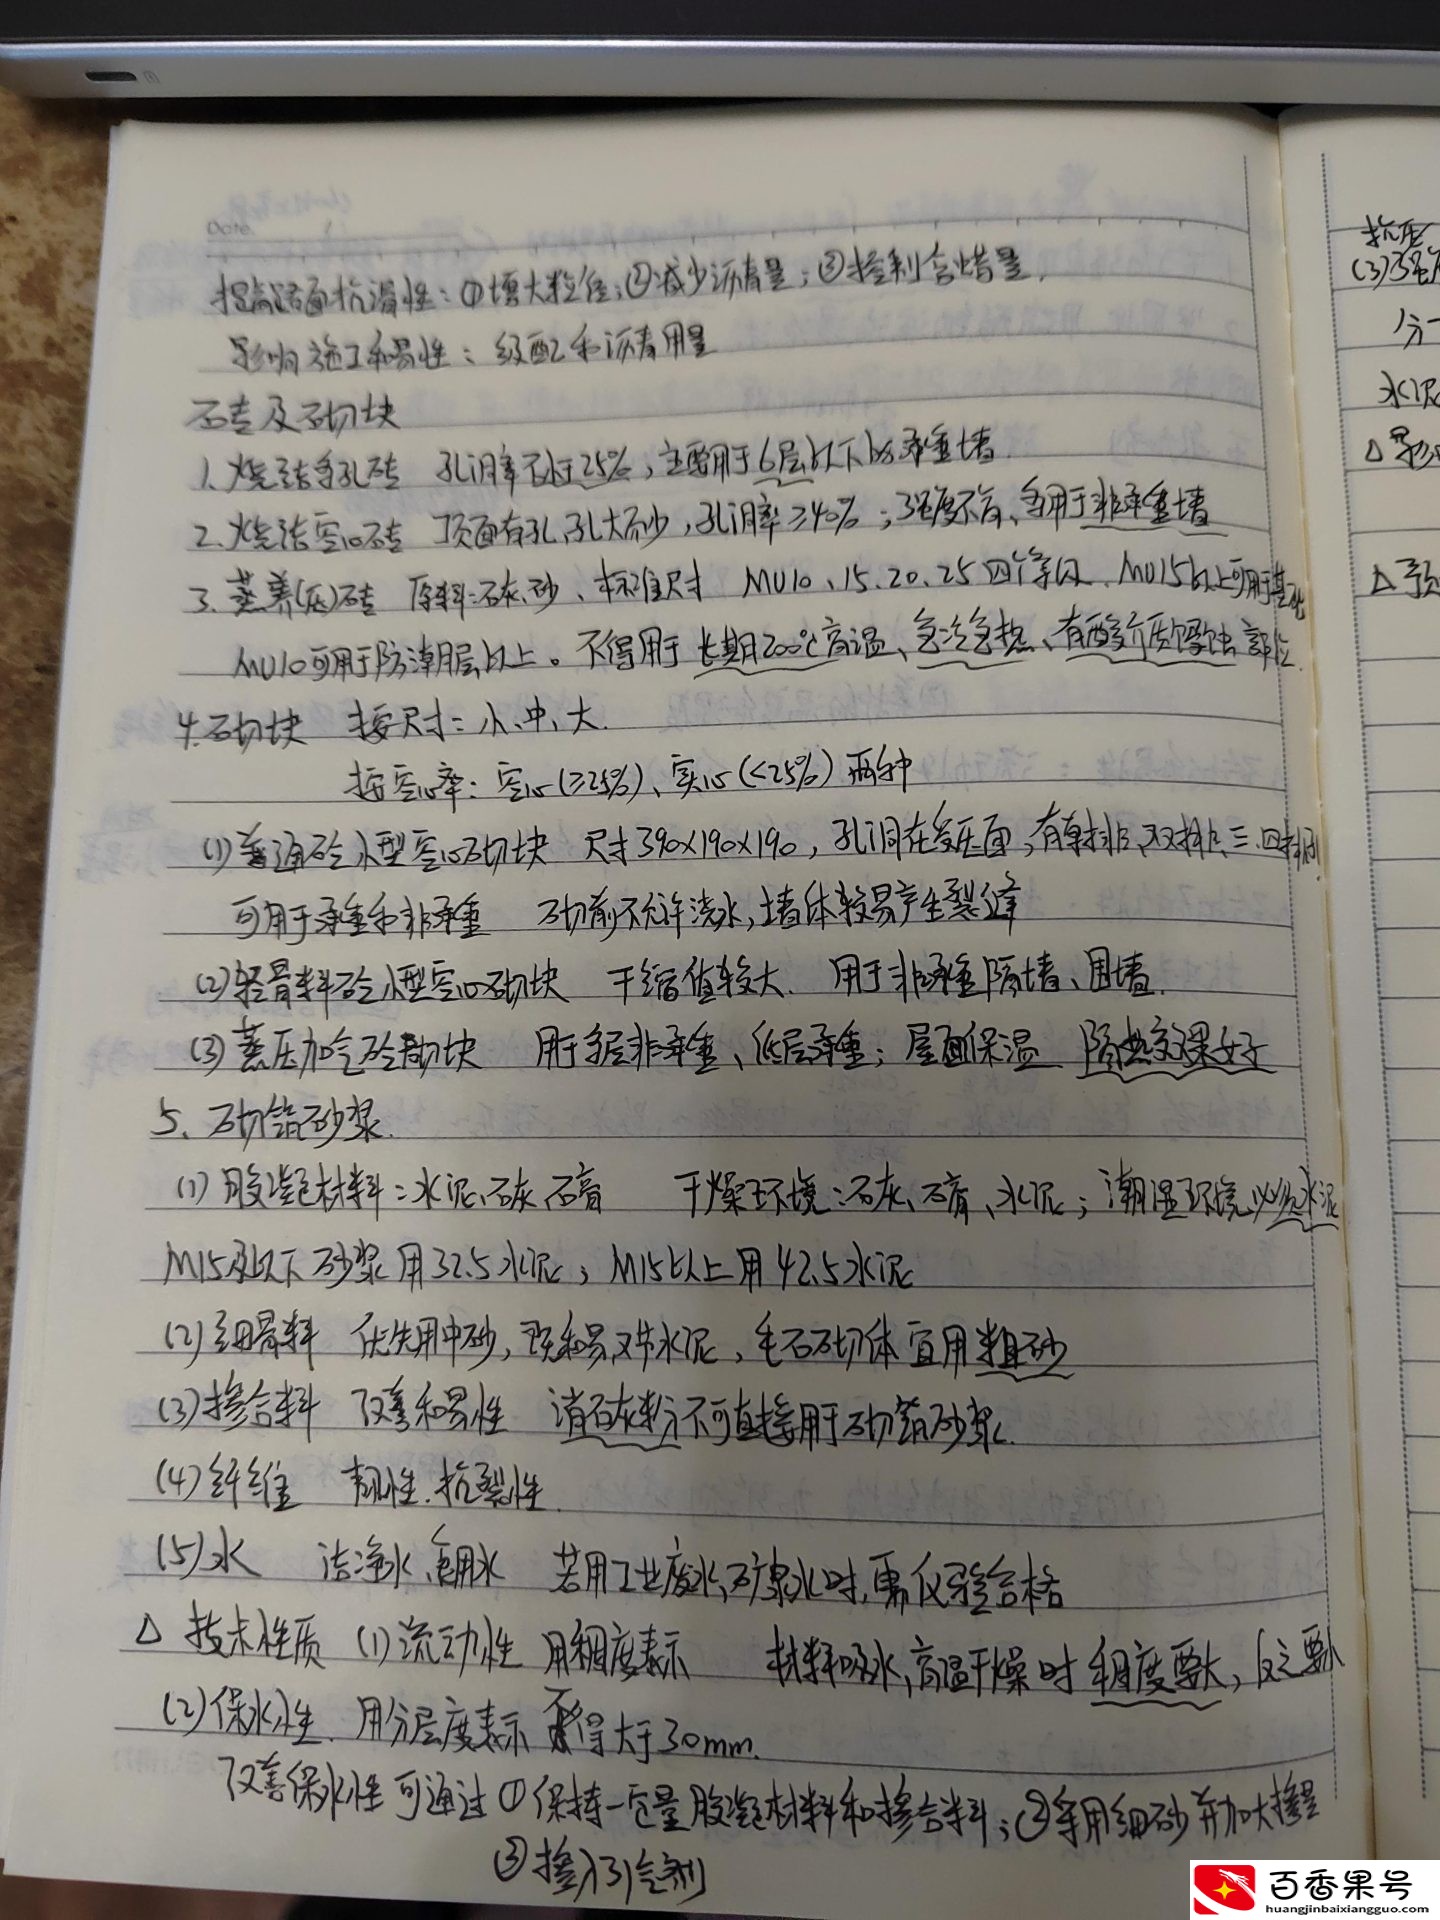 Date.
提高路面抗滑性：①增大粒径；②减少沥青量；③控制含蜡量.
影响施工和易性：级配和沥青用量
砖及砌块
1. 烧结多孔砖 孔洞率不小于25%，主要用于6层以下的承重墙.
2. 烧结空心砖 顶面有孔、孔大而少，孔洞率≥40%；强度不高、多用于非承重墙
3. 蒸养(压)砖 原料:石灰、砂、标准尺寸 MU10、15.20.25四个等级. MU15以上可用于基础
MU10可用于防潮层以上。不得用于长期200℃高温、急冷急热、有酸介质侵蚀部位.
4. 砌块 按尺寸：小、中、大.
按空心率：空心(≥25%)、实心(<25%)两种
(1)普通砼小型空心砌块 尺寸390×190×190，孔洞在受压面，有单排、双排、三、四排孔
可用于承重和非承重 砌前不允许浇水，墙体较易产生裂缝
(2)轻骨料砼小型空心砌块 干缩值较大. 用于非承重隔墙、围墙.
(3)蒸压加气砼砌块 用于多层非承重、低层承重；屋面保温 隔热效果好
5、砌筑砂浆.
(1)胶凝材料：水泥、石灰、石膏 干燥环境：石灰、石膏、水泥；潮湿环境，必须水泥
M15及以下砂浆用32.5水泥；M15以上用42.5水泥
(2)细骨料 优先用中砂，既和易又节水泥，毛石砌体宜用粗砂
(3)掺合料 改善和易性 消石灰粉不可直接用于砌筑砂浆.
(4)纤维 韧性.抗裂性.
(5)水 洁净水、饮用水 若用工业废水、矿泉水时,需化验合格
△ 技术性质 (1)流动性 用稠度表示 材料吸水,高温干燥时稠度要大，反之要小
(2)保水性. 用分层度表示 不得大于30mm.
改善保水性可通过①保持一定量胶凝材料和掺合料；②采用细砂并加大掺量
③掺入引气剂
抗压
(3)强
1分
水泥
△影响
△预
百香果号
huangjinbaixiangguo.com